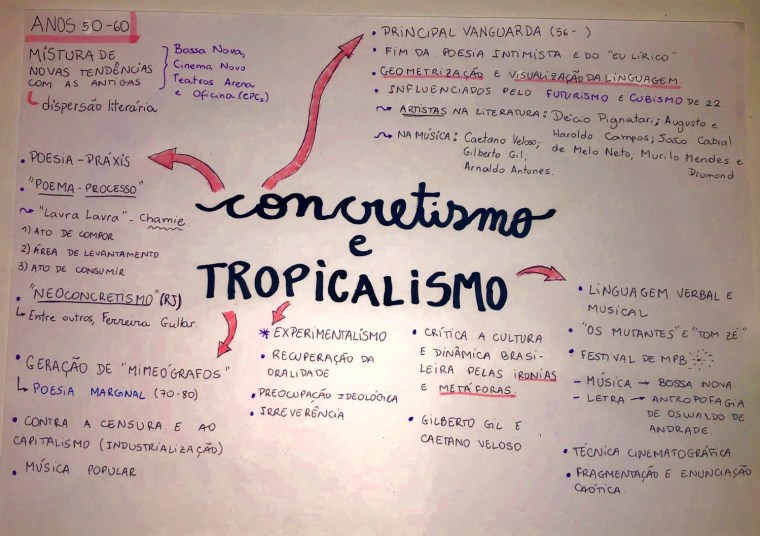 ANOS 50-60
MISTURA DE
NOVAS TENDÊNCIAS
COM AS ANTIGAS
dispersão literária
Bossa Nova,
Cinema Novo
Teatros Arena
e Oficina (CPCs)
• PRINCIPAL VANGUARDA (56- )
• FIM DA POESIA INTIMISTA E DO "EU LÍRICO"
• GEOMETRIZAÇÃO E VISUALIZAÇÃO DA LINGUAGEM.
• INFLUENCIADOS PELO FUTURISMO E CUBISMO DE 22
~ ARTISTAS NA LITERATURA: Décio Pignatari; Augusto e
Haroldo Campos; João Cabral
de Melo Neto, Murilo Mendes e
Drumond
~ NA MÚSICA: Caetano Veloso;
Gilberto Gil,
Arnaldo Antunes.
• POESIA-PRÁXIS
• "POEMA-PROCESSO"
~ "Lavra Lavra" - Chamie
1) ATO DE COMPOR
2) ÁREA DE LEVANTAMENTO
3) ATO DE CONSUMIR
• "NEOCONCRETISMO" (RJ)
↳ Entre outros, Ferreira Gullar.
concretismo
e
TROPICALISMO
• GERAÇÃO DE "MIMEÓGRAFOS"
↳ POESIA MARGINAL (70-80)
• CONTRA A CENSURA E AO
CAPITALISMO (INDUSTRIALIZAÇÃO)
• MÚSICA POPULAR
* EXPERIMENTALISMO
• RECUPERAÇÃO DA
ORALIDADE
• PREOCUPAÇÃO IDEOLÓGICA
• IRREVERÊNCIA
• CRÍTICA A CULTURA
E DINÂMICA BRASI-
LEIRA PELAS IRONIAS
E METÁFORAS.
• GILBERTO GIL E
CAETANO VELOSO
• LINGUAGEM VERBAL E
MUSICAL
• "OS MUTANTES" E "TOM ZÉ"
• FESTIVAL DE MPB
- MÚSICA → BOSSA NOVA
- LETRA → ANTROPOFAGIA
DE OSWALDO DE
ANDRADE.
• TÉCNICA CINEMATOGRÁFICA
• FRAGMENTAÇÃO E ENUNCIAÇÃO
CAÓTICA.